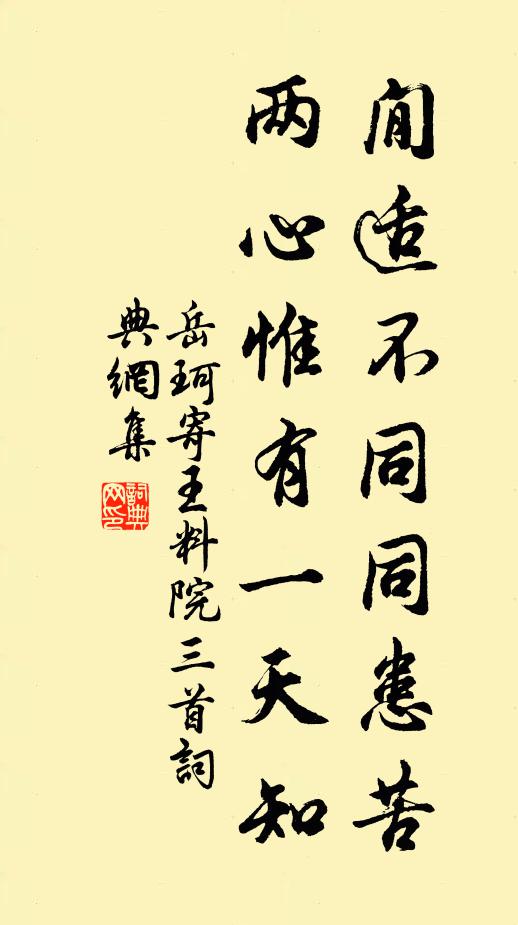 閒适不同同患苦
两心惟有一天知
岳珂寄王料院三首詞
典網集
詞典
网印